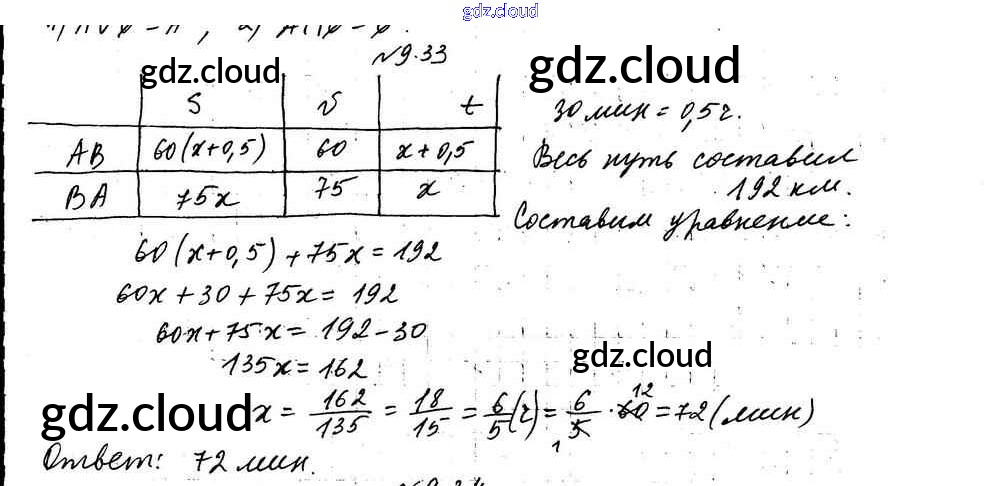 gdz.cloud
№9.33
gdz.cloud
gdz.cloud
S v t
30 мин = 0,5 г.
AB 60(x+0,5) 60 x+0,5
Весь путь составил
192 км.
BA 75x 75 x
Составим уравнение:
60(x+0,5)+75x=192
60x+30+75x=192
60x+75x=192-30
135x=162
gdz.cloud
gdz.cloud
x = 162/135 = 18/15 = 6/5 (г) = 6/5 · 60 = 72 (мин)
12
1
Ответ: 72 мин.